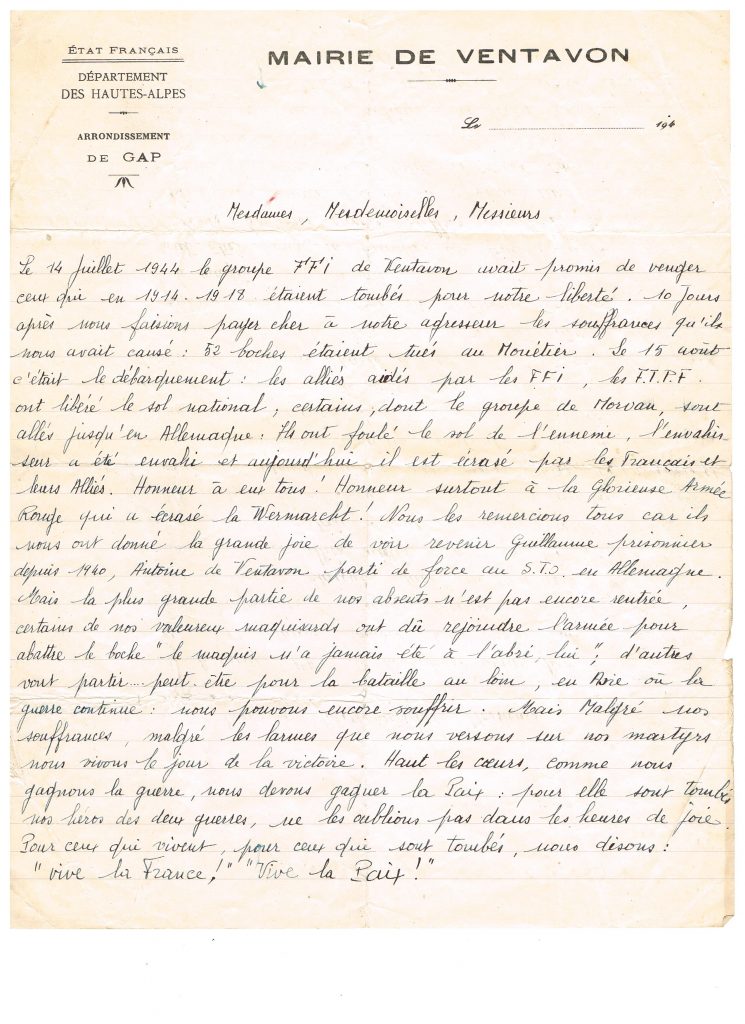 ÉTAT FRANÇAIS
DÉPARTEMENT
DES HAUTES-ALPES
ARRONDISSEMENT
DE GAP
MAIRIE DE VENTAVON
Le 194
Mesdames, Mesdemoiselles, Messieurs
Le 14 Juillet 1944 le groupe F.F.i de Ventavon avait promis de venger
ceux qui en 1914-1918 étaient tombés pour notre liberté. 10 Jours
après nous faisions payer cher à notre agresseur les souffrances qu'ils
nous avait causé : 52 boches étaient tués au Monêtier. Le 15 août
c'était le débarquement : les alliés aidés par les F.F.i, les F.T.P.F.
ont libéré le sol national ; certains, dont le groupe de Morvan, sont
allés jusqu'en Allemagne : Ils ont foulé le sol de l'ennemi, l'envahis-
seur a été envahi et aujourd'hui il est écrasé par les Français et
leurs Alliés. Honneur à eux tous ! Honneur surtout à la Glorieuse Armée
Rouge qui a écrasé la Wermarcht ! Nous les remercions tous car ils
nous ont donné la grande joie de voir revenir Guillaume prisonnier
depuis 1940, Antoine de Ventavon parti de force au S.T.O. en Allemagne.
Mais la plus grande partie de nos absents n'est pas encore rentrée,
certains de nos valeureux maquisards ont dû rejoindre l'armée pour
abattre le boche "le maquis n'a jamais été à l'abri, lui" ; d'autres
vont partir peut-être pour la bataille au loin, en Asie où la
guerre continue : nous pouvons encore souffrir. Mais Malgré nos
souffrances, malgré les larmes que nous versons sur nos martyrs
nous vivons le jour de la victoire. Haut les cœurs, comme nous
gagnons la guerre, nous devons gagner la Paix : pour elle sont tombés
nos héros des deux guerres, ne les oublions pas dans les heures de joie.
Pour ceux qui vivent, pour ceux qui sont tombés, nous disons :
"vive la France !" "Vive la Paix !"